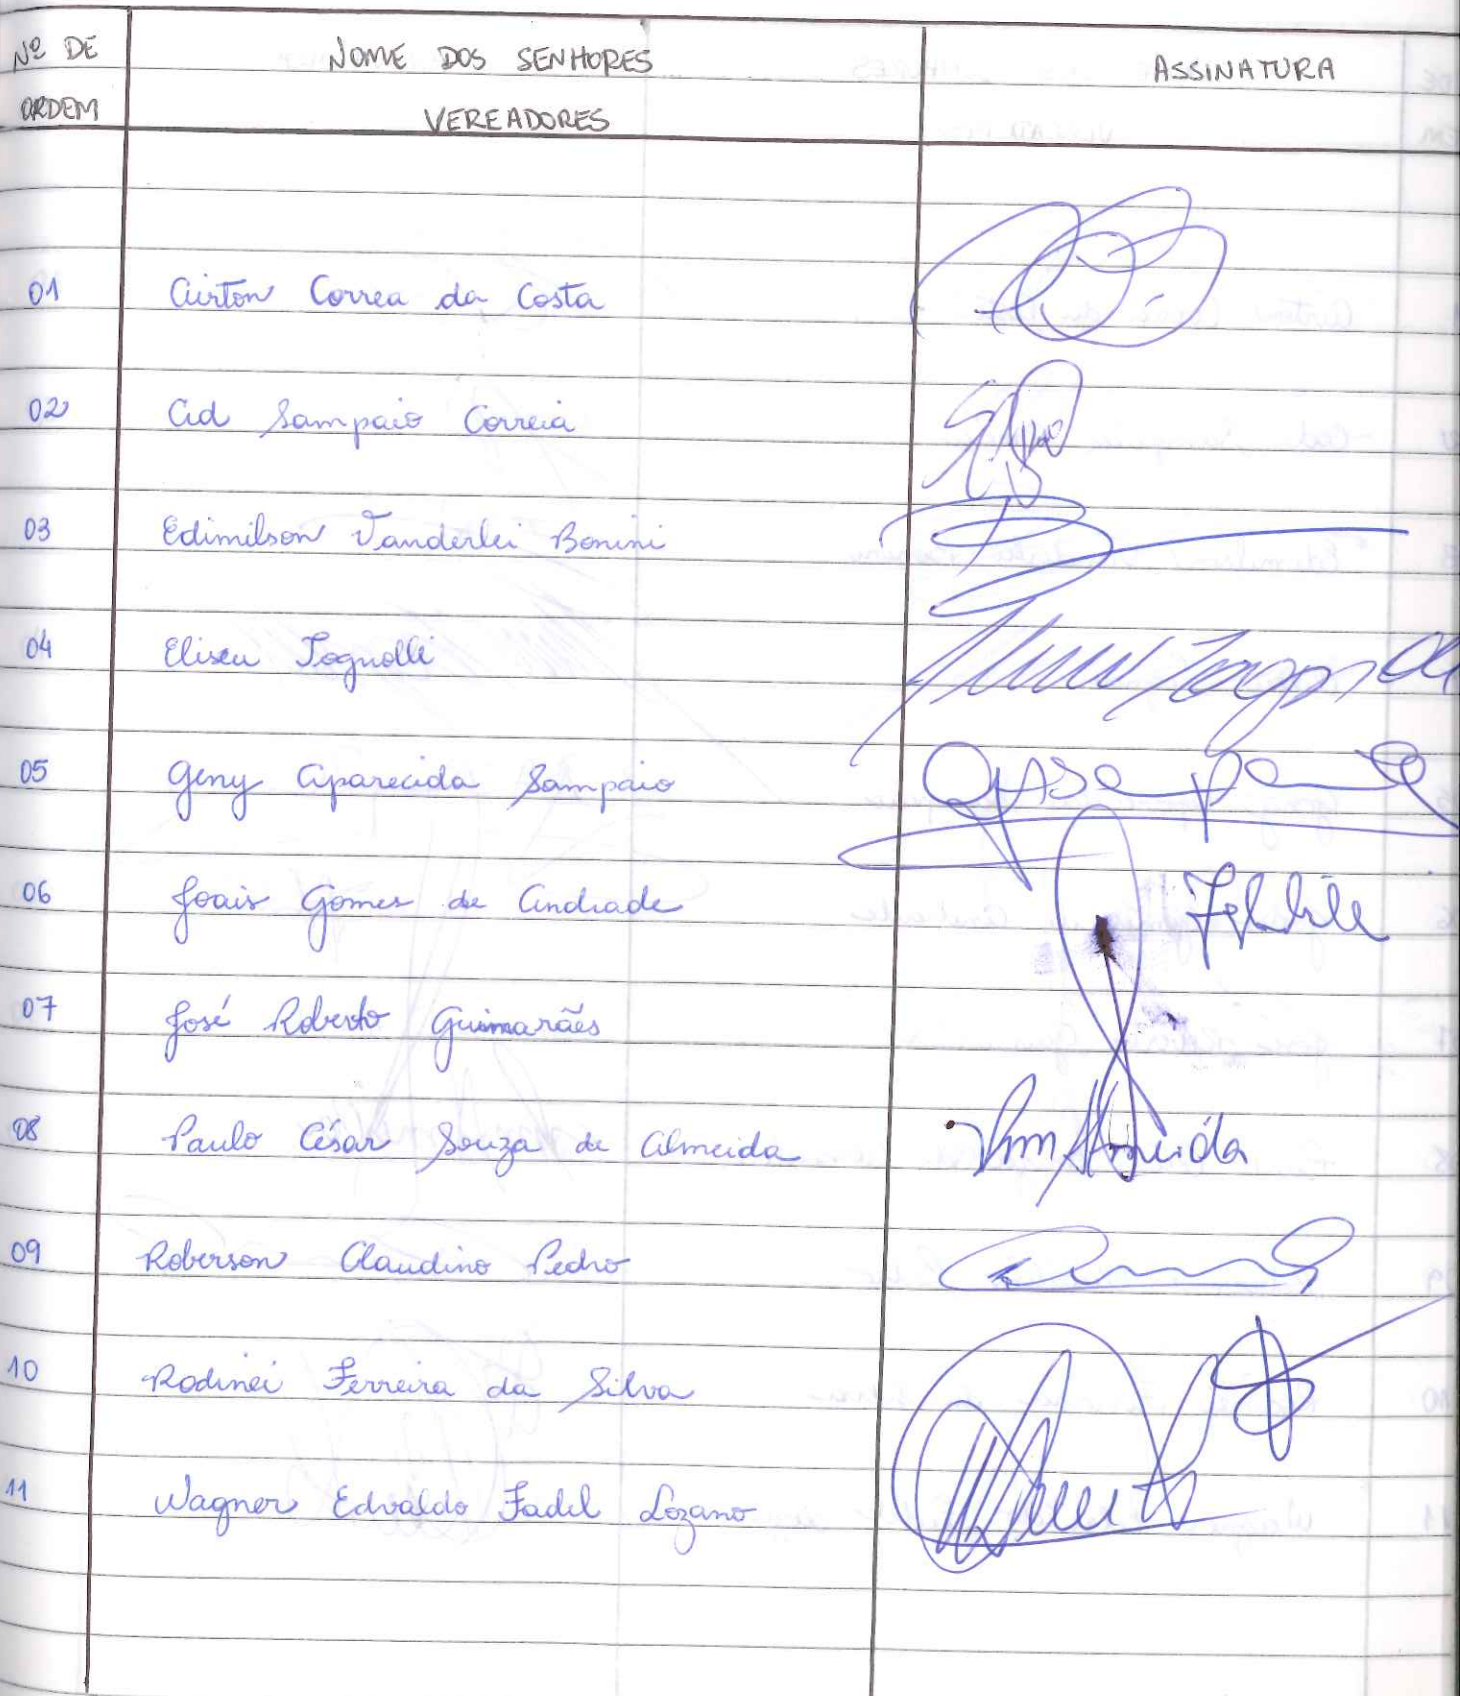 Nº DE NOME DOS SENHORES ASSINATURA
ORDEM VEREADORES
01 Airton Correa da Costa
02 Cid Sampaio Correia
03 Edimilson Vanderlei Bonini
04 Eliseu Tognolli
05 Geny Aparecida Sampaio
06 Joais Gomes de Andrade
07 José Roberto Guimarães
08 Paulo César Souza de Almeida Almeida
09 Roberson Claudino Pedro
10 Rodinei Ferreira da Silva
11 Wagner Edvaldo Fadel Lozano